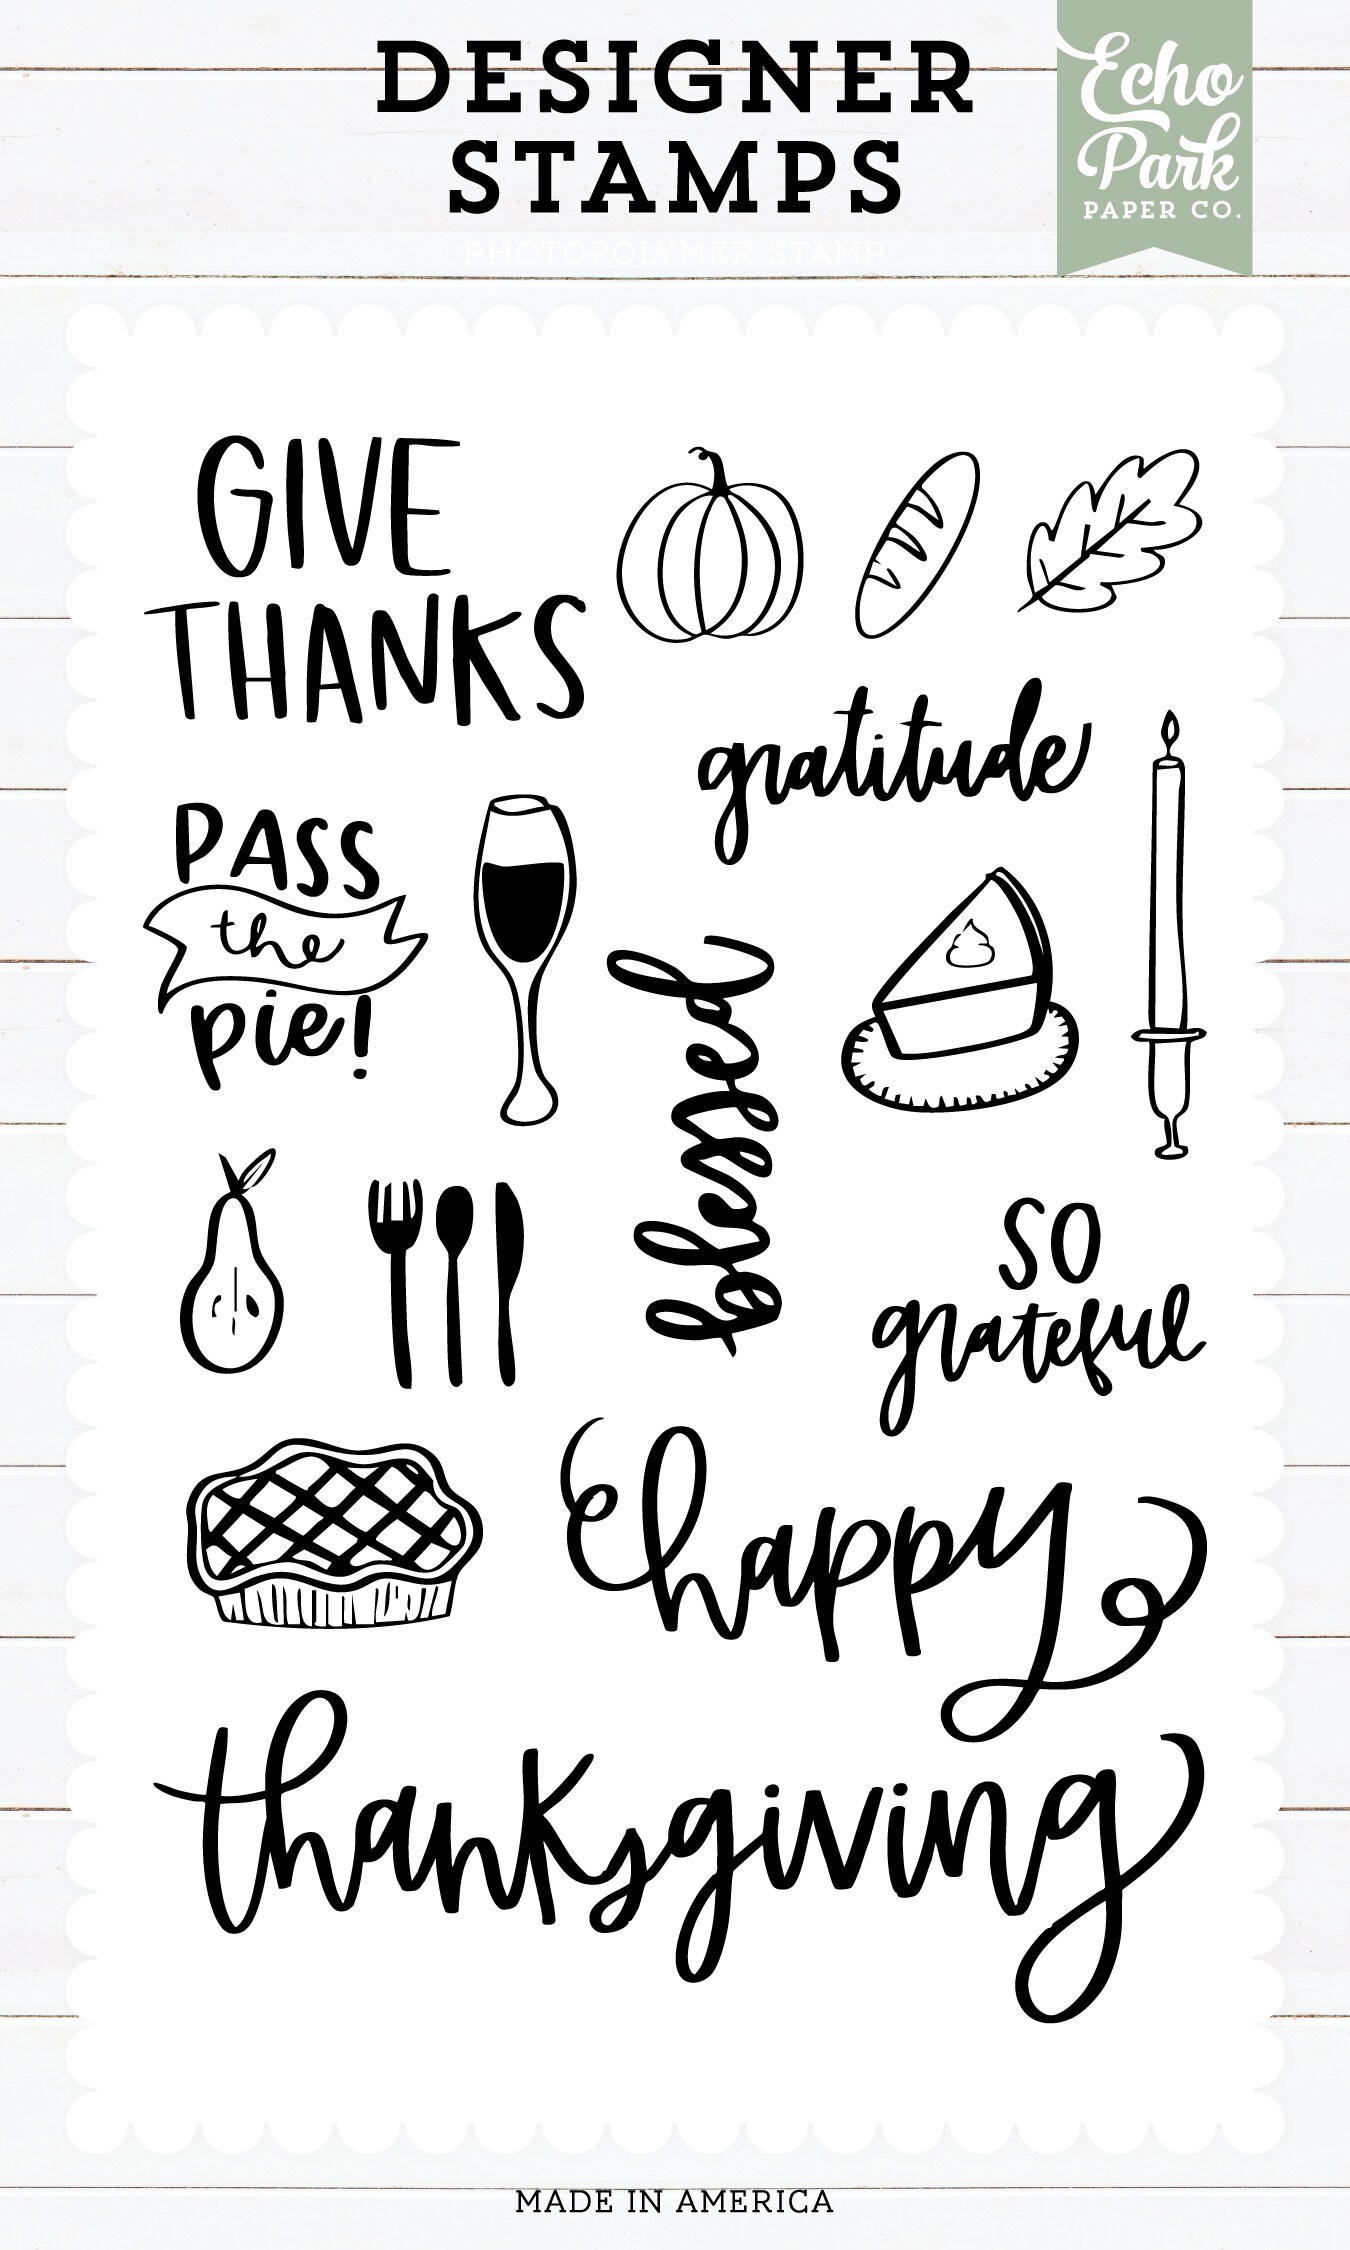 DESIGNER
STAMPS
PHOTOPOLYMER STAMP
Echo
Park
PAPER CO.
GIVE
THANKS
gratitude
PASS
the
pie!
blessed
SO
grateful
happy
thanksgiving
MADE IN AMERICA